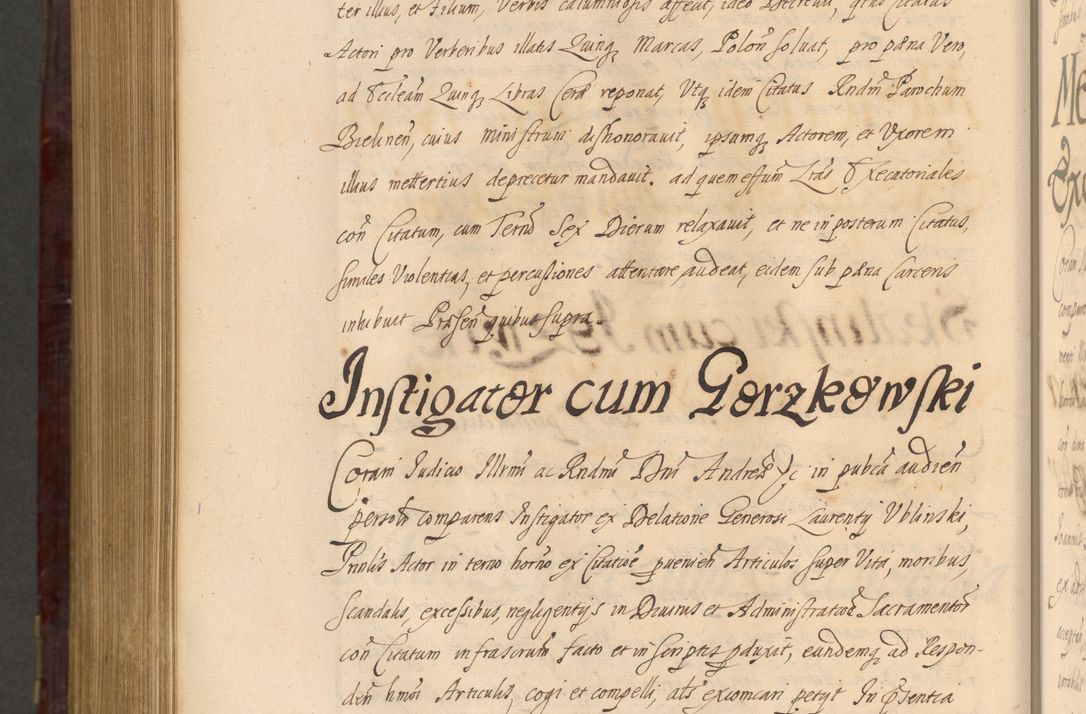 ter illius, et Filium, Verbis calumniosis affecit, ideo Decrevit, qtus Citatus
Actori pro Verberibus illatis Quinq Marcas, Polon̄ solvat, pro pæna Vero,
ad Eccleam Quinq Libras Ceræ reponat, Utq idem Citatus Rndm̄ Parochum
Bielinen̄, cuius ministrum dishonoravit, ipsumq Actorem, et Uxorem
illius mettertius deprecetur mandavit. ad quem effum̄ Lrãs Execatoriales
con̄ Citatum, cum Termo Sex Dierum relaxavit, et ne in posterum Citatus,
similes Violentias, et percussiones attentare audeat, eidem sub pæna Carceris
inhibuit Præsen̄ quibus supra.
Instigator cum Gorzkowski
Coram Judicio Illrm̄i ac Rndm̄i Dn̄i Andreæ &c in pubca audien̄
person̄ comparens Instigator ex Delatione Generosi Laurentij Ublinski,
Prnlis Actor in termo horno ex Citatiõe puenien̄ Articulos super Vita, moribus,
Scandalis, excessibus, negligentijs in Divinis et Administratiõe Sacramentor̄
con̄ Citatum infrascrum facto et in scriptis pduxit, eundemq ad Respon-
den̄ hm̄oi Articulis, cogi et compelli, als̄ excomcari petijt In p̄sentia